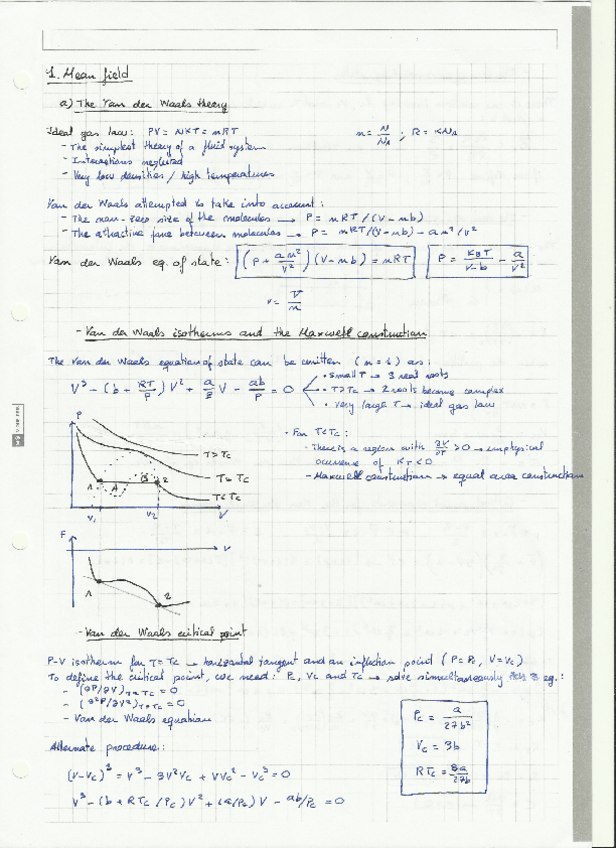 1. Mean field
a) The Van der Waals theory
Ideal gas law: PV = NKT = nRT
n = N/NA ; R = KNA
- The simplest theory of a fluid system
- Interactions neglected
- Very low densities / high temperatures
Van der Waals attempted to take into account:
- The non-zero size of the molecules → P = nRT/(V-nb)
- The attractive force between molecules → P = nRT/(V-nb) - an²/V²
Van der Waals eq. of state: (P + an²/V²)(V-nb) = nRT
P = KBT/(v-b) - a/v²
v = V/n
- Van der Waals isotherms and the Maxwell construction
The Van der Waals equation of state can be written (n=1) as:
V³ - (b + RT/P) V² + a/P V - ab/P = 0
• small T → 3 real roots
• T>Tc → 2 roots become complex
• very large T → ideal gas law
P
T>Tc
T=Tc
T<Tc
1
A
B
2
V1
V2
V
• For T<Tc:
- There is a region with >0 → unphysical
occurence of KT<0
- Maxwell construction → equal area construction
F
V
2
- Van der Waals critical point
P-V isotherm for T=Tc → horizontal tangent and an inflection point (P=Pc, V=Vc)
To define the critical point, we need: Pc, Vc and Tc → solve simultaneously eq.:
- (∂P/∂V)T=Tc = 0
- (∂²P/∂V²)T=Tc = 0
- Van der Waals equation
Pc = a/27b²
Vc = 3b
RTc = 8a/27b
Alternate procedure:
(V-Vc)³ = V³ - 3V²Vc + VVc² - Vc³ = 0
V³ - (b + RTc/Pc) V² + (a/Pc) V - ab/Pc = 0